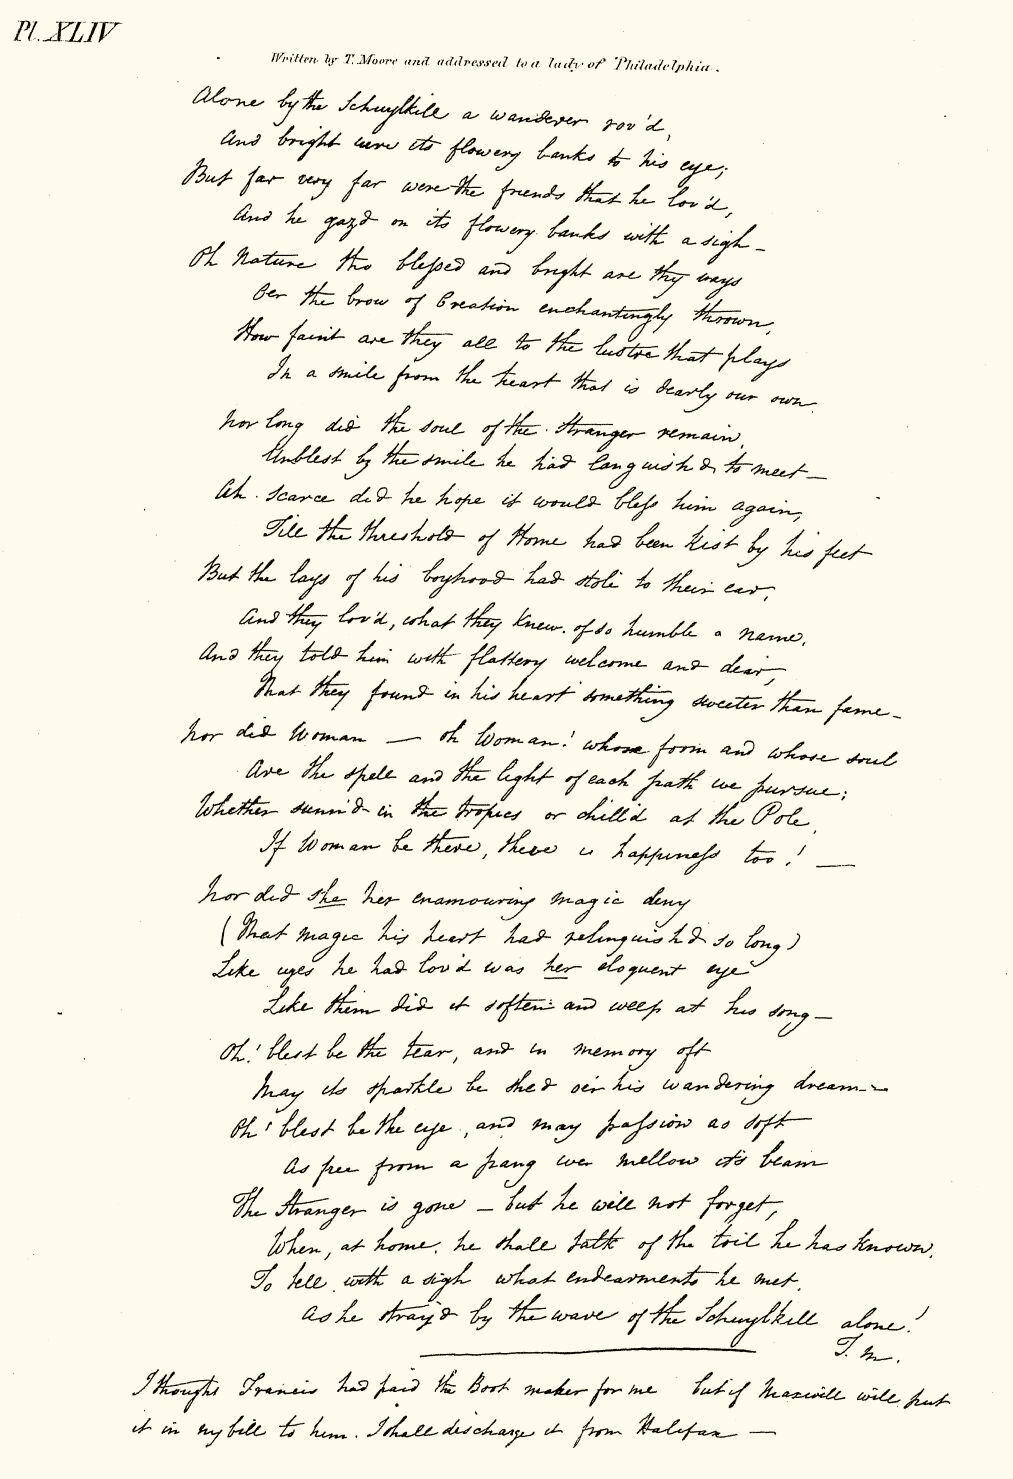 Pl. XLIV
Written by T. Moore and addressed to a lady of Philadelphia.
Alone by the Schuylkill a wanderer rov'd,
And bright were its flowery banks to his eye;
But far very far were the friends that he lov'd,
And he gaz'd on its flowery banks with a sigh —
Oh Nature tho blessed and bright are thy ways
Oer the brow of Creation enchantingly thrown,
How faint are they all to the lustre that plays
In a smile from the heart that is dearly our own.
Nor long did the soul of the Stranger remain,
Unblest by the smile he had languish'd to meet —
Ah. scarce did he hope it would bless him again,
Till the threshold of Home had been kist by his feet
But the lays of his boyhood had stole to their ear,
And they lov'd, what they knew, of so humble a name,
And they told him with flattery welcome and dear,
That they found in his heart something sweeter than fame —
Nor did Woman — oh Woman! whose form and whose soul
Are the spell and the light of each path we pursue;
Whether sunn'd in the tropics or chill'd at the Pole,
If Woman be there, there is happiness too! —
Nor did she her enamouring magic deny
(That magic his heart had relinquish'd so long)
Like eyes he had lov'd was her eloquent eye
Like them did it soften and weep at his song —
Oh! blest be the tear, and in memory oft
May its sparkle be shed o'er his wandering dream —
Oh! blest be the eye, and may passion as soft
As free from a pang ever mellow its beam
The Stranger is gone — but he will not forget,
When, at home, he shall talk of the toil he has known,
To tell with a sigh what endearments he met,
As he stray'd by the wave of the Schuylkill alone!
T. M.
I thought Francis had paid the Boot maker for me but if Maxwell will put
it in my bill to him. I shall discharge it from Halifax —